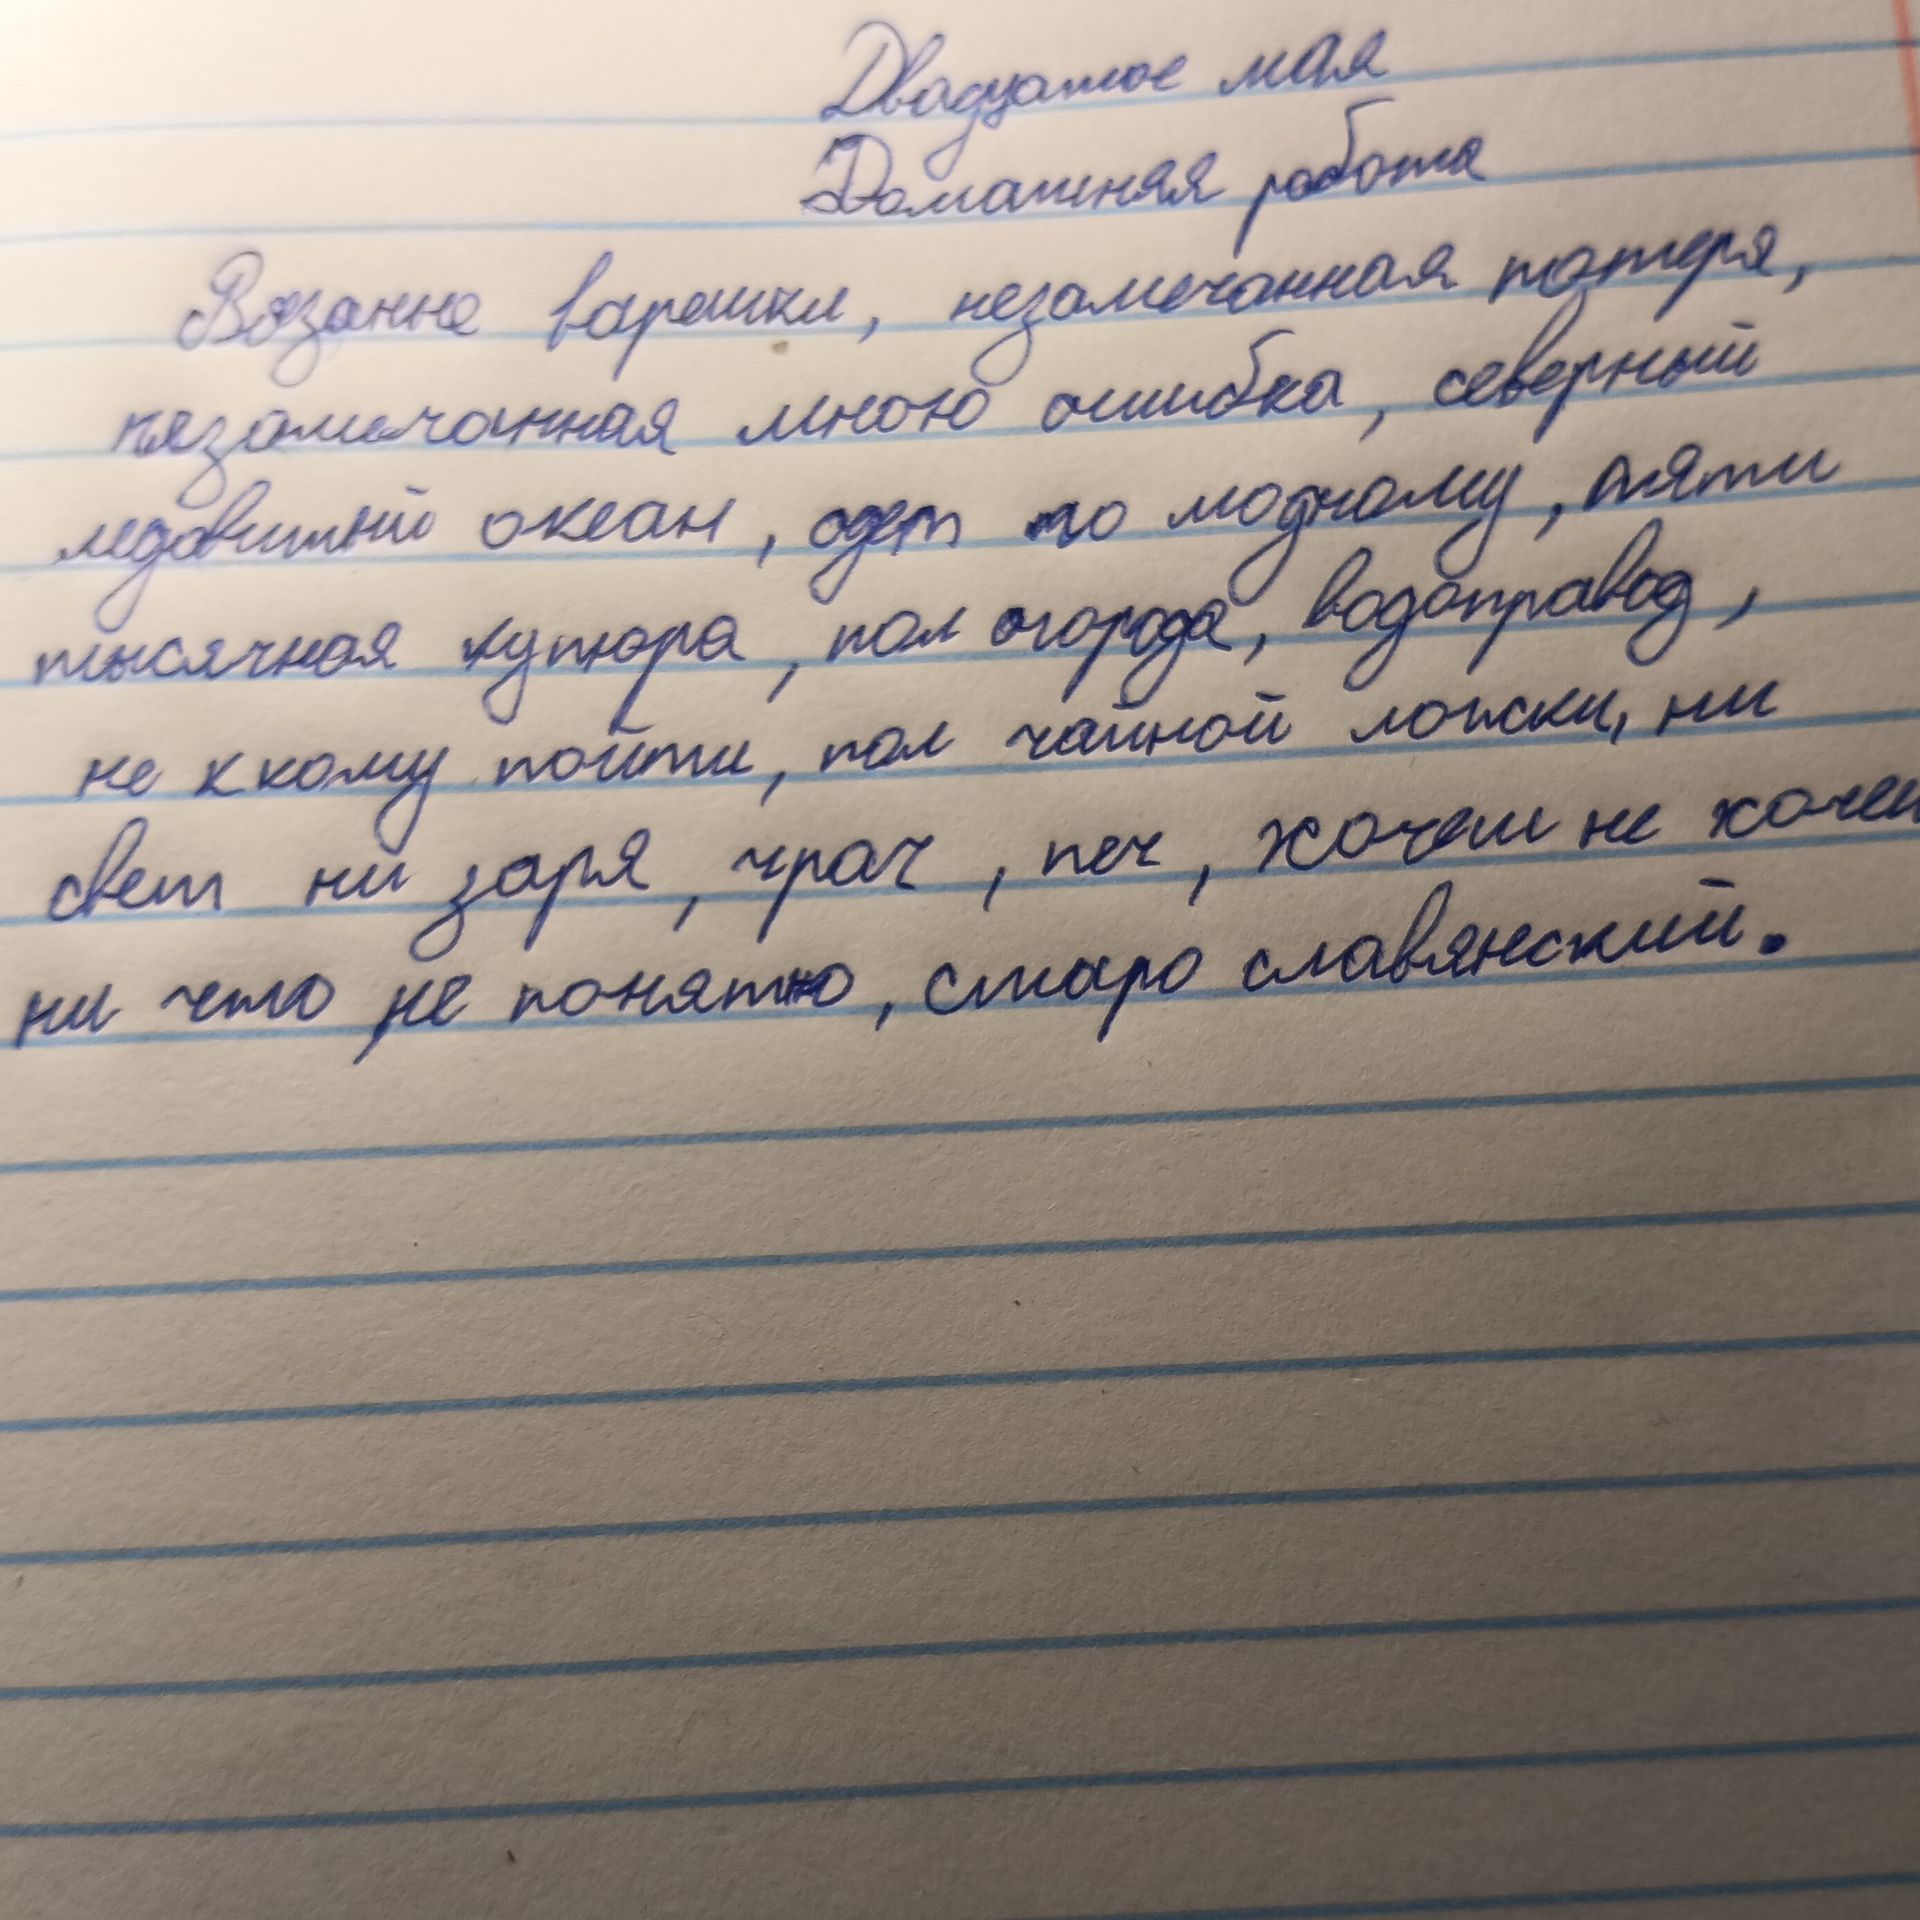 Двадцатое мая
Домашняя работа
Вязанне варешки, незамечанная потеря,
незамечанная мною ошибка, северный
ледовитый океан, одет по модному, пяти
тысячная купюра, пол огорода, водоправод,
не к кому пойти, пол чайной ложки, ни
свет ни заря, чрач, печ, хочеш не хочеш
ни что не понятно, старо славянский.